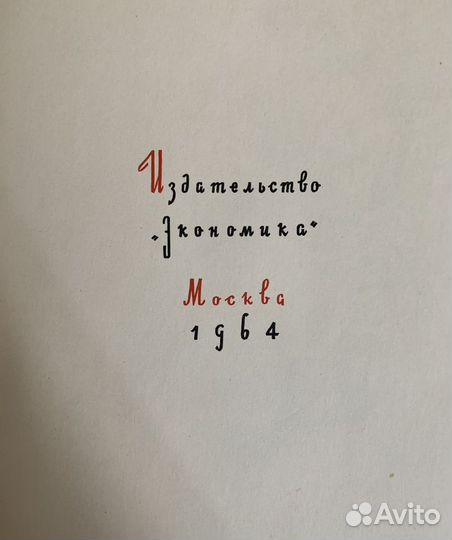 Издательство
"Экономика"
Москва
1964
Avito